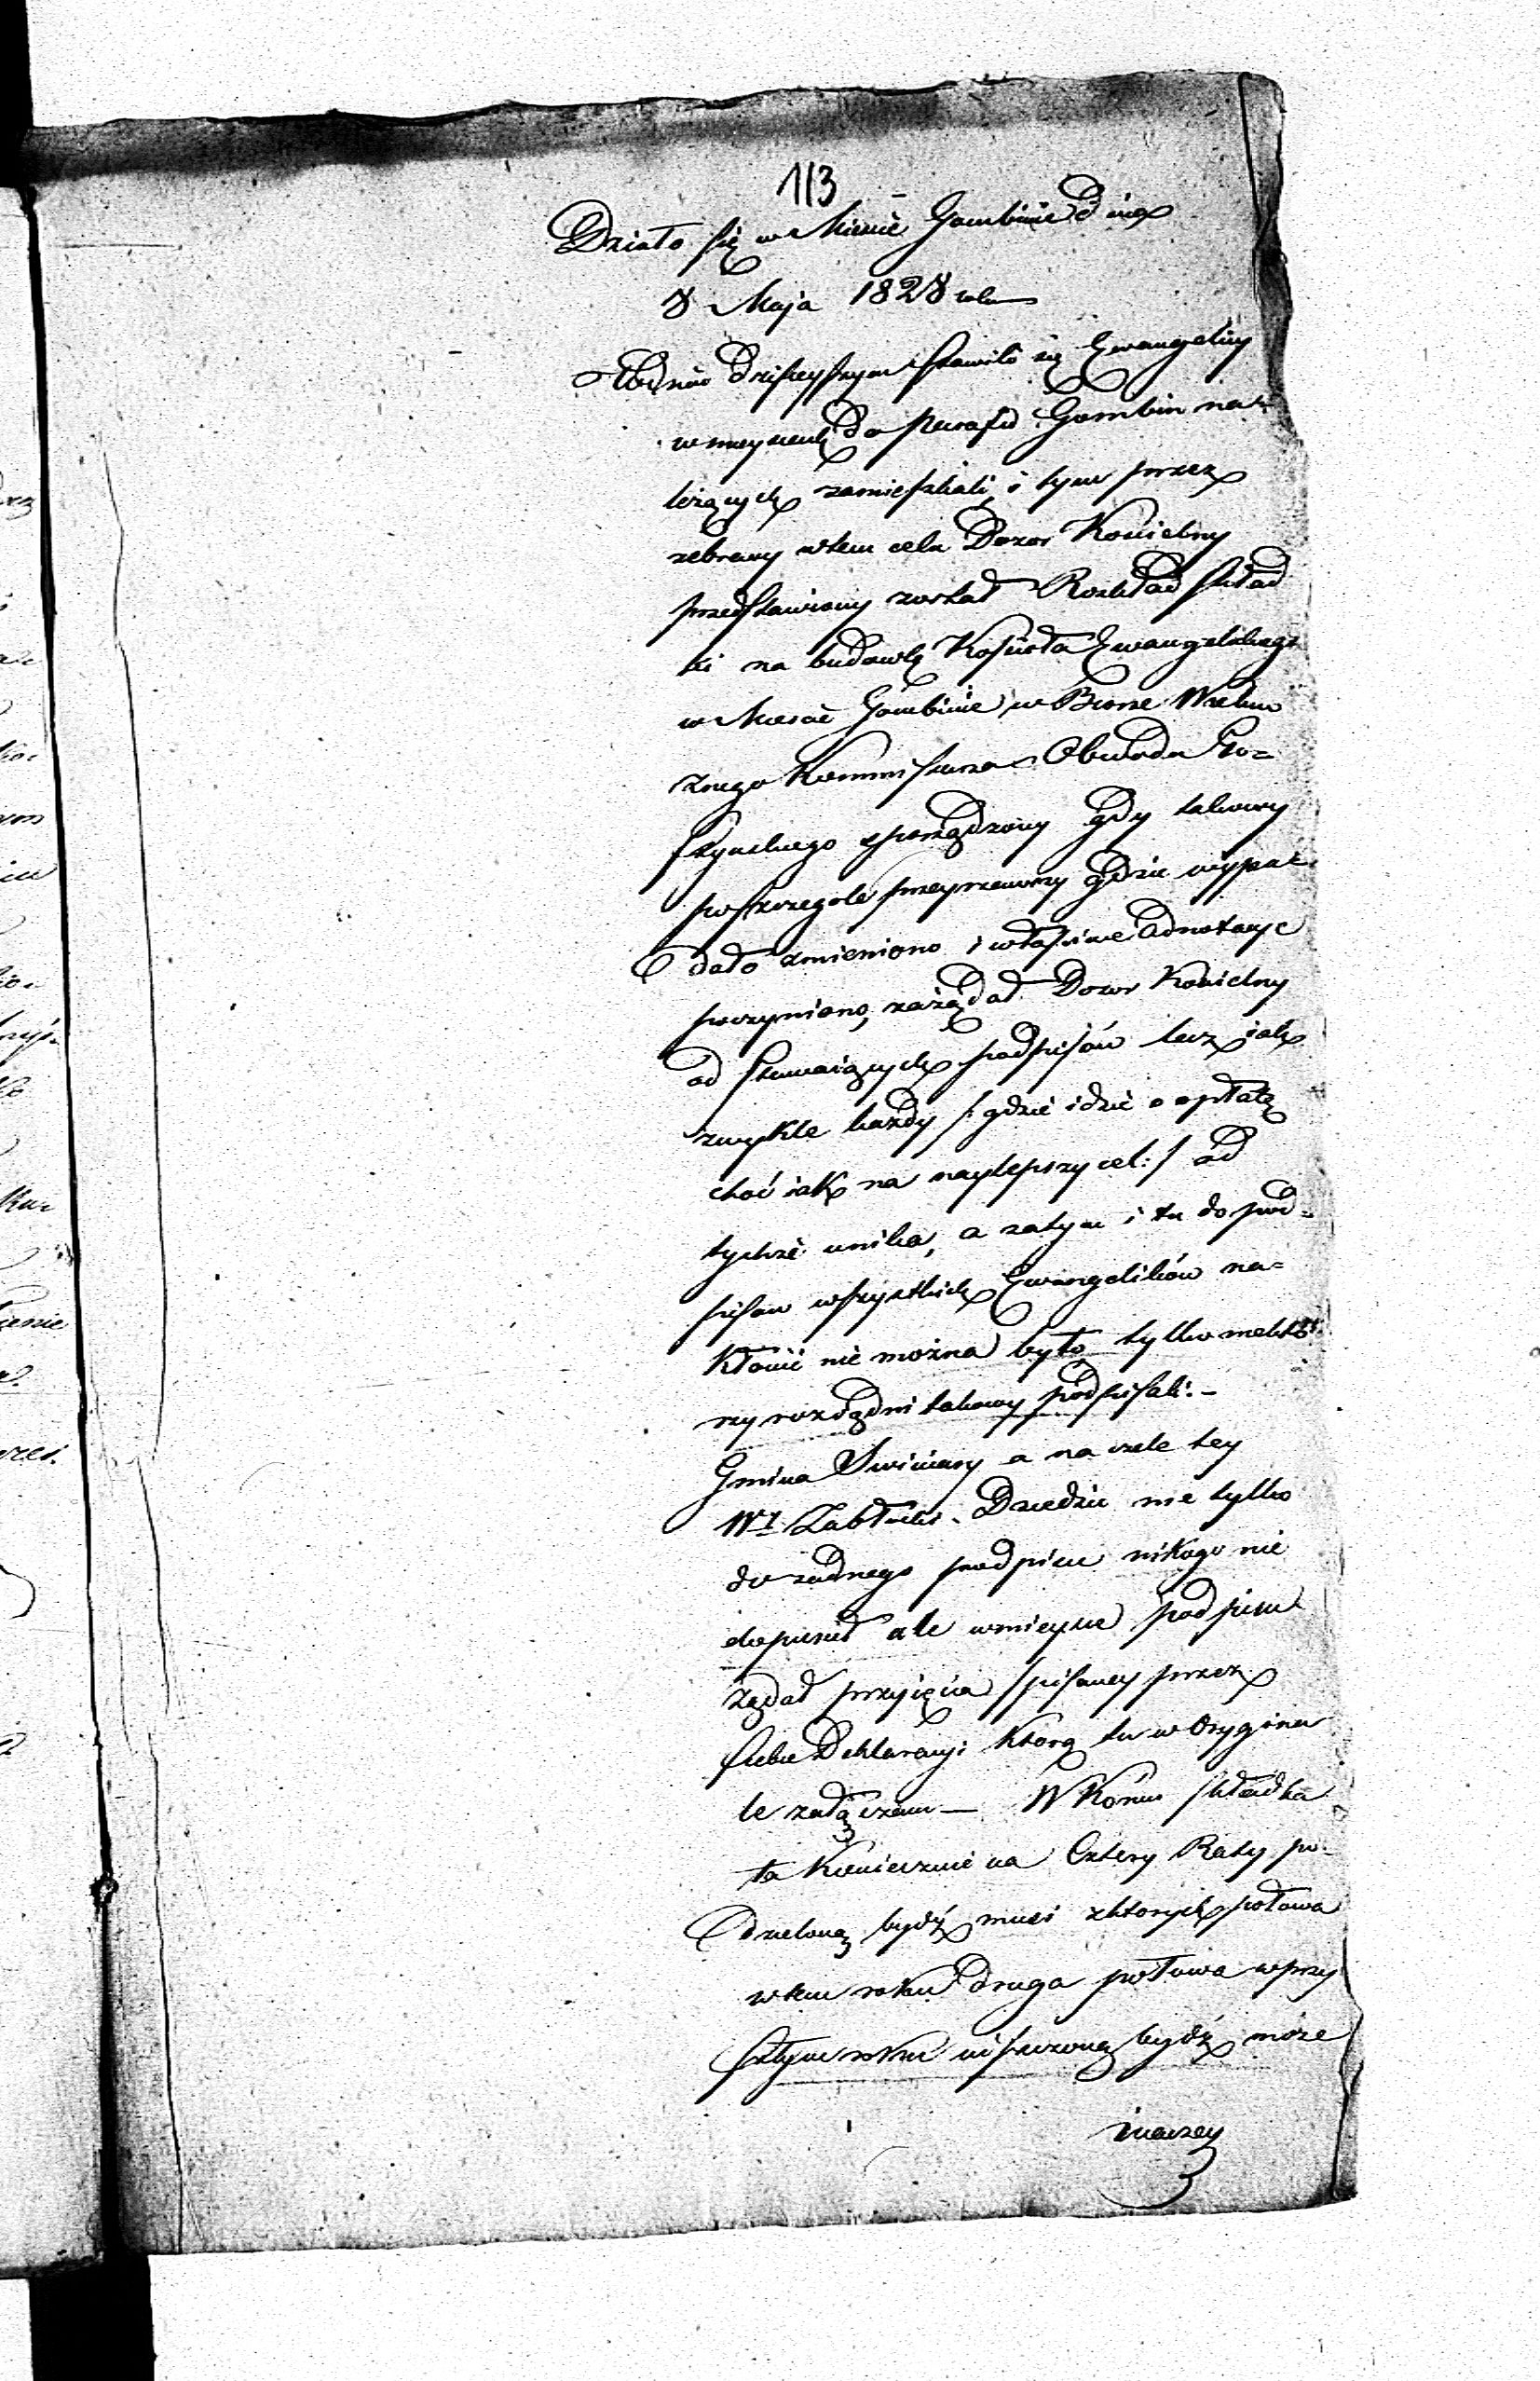 113
Działo się w Mieście Gombinie dnia
8 Maja 1828 roku
W dniu dzisieyszym stawili się Ewangelicy
w mieyscach do Parafii Gombin na=
leżących zamieszkali, i tym przez
zebrany wtem celu Dozor Kościelny
przedstawiony został Rozkład skład
ki na budowlę Kościoła Ewangelickiego
w Mieście Gombinie w Biorze Wielmo
żnego Kommissarza Obwodu Go=
styńskiego sporządzony gdy takowy
poszczegole przeyrzawszy gdzie wypa=
dało zmieniono i właściwe adnotacye
poczyniono, zażądał Dozor Kościelny
od stawaiących podpisów lecz iak
zwykle każdy /: gdzie idzie o opłatę
choć iak na naylepszy cel :/ od
tychże unika, a zatym i tu do pod=
pisow wszystkich Ewangelików na=
kłonić nie można było tylko niektó
rzy rozsądni takowy podpisali.-
Gmina Swiniary a na czele tey
Wy Zabłocki Dziedzic nie tylko
do żadnego podpisu nikogo nie
dopuścił ale wmieysce podpisu
żądał przyięcia spisaney przez
siebie Deklaracyi którą tu w Orygina
le załączam — W Końcu składka
ta koniecznie na Cztery Raty po=
dzieloną bydź musi zktorych połowa
wtem roku druga połowa wprzy
szłym roku uiszczoną bydź może
inaczey